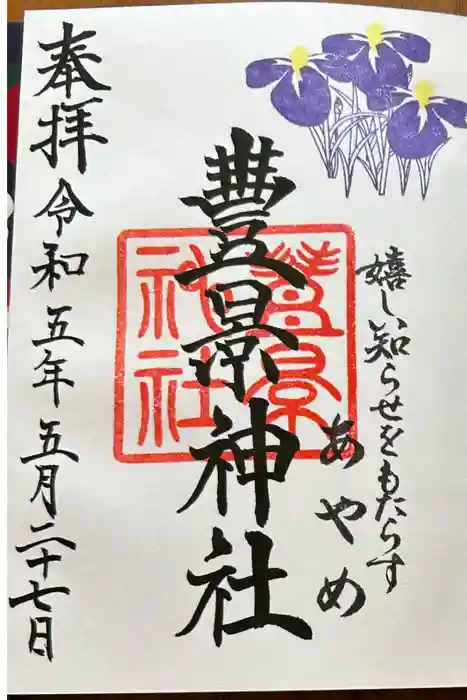 嬉しい知らせをもたらす
あやめ
豊景神社
豊景
神社
奉拝 令和五年五月二十七日